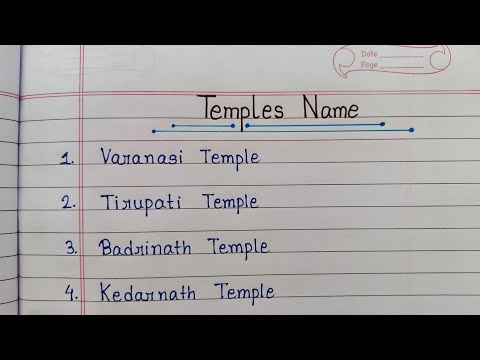 Date
Page
Temples Name
1. Varanasi Temple
2. Tirupati Temple
3. Badrinath Temple
4. Kedarnath Temple